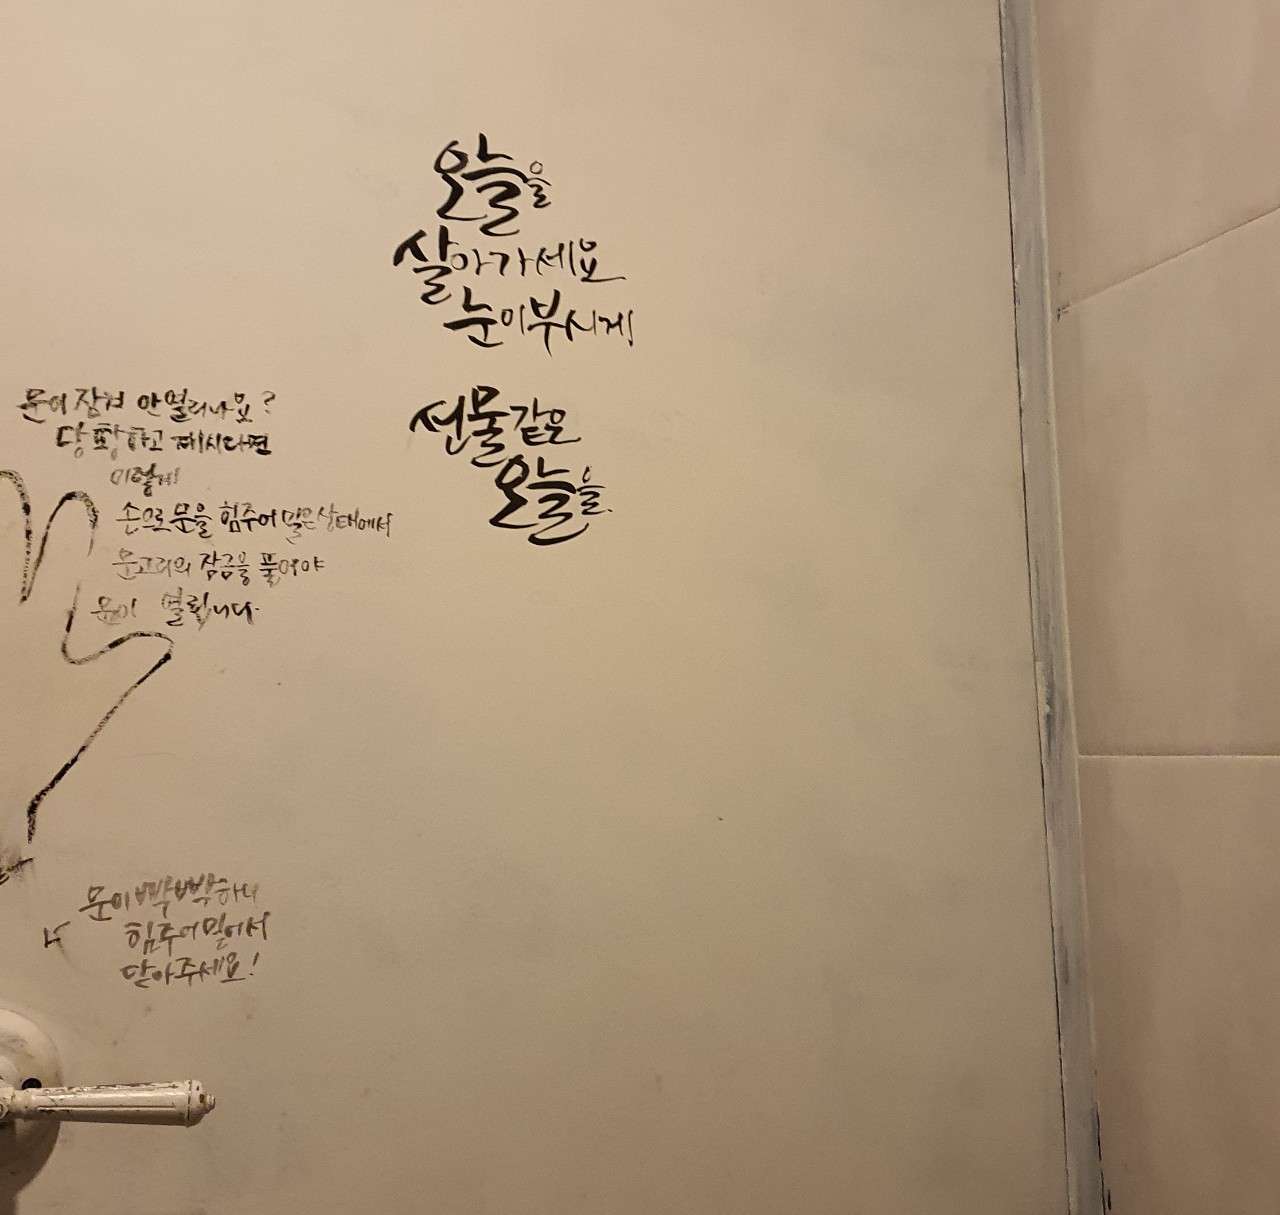 오늘을
살아가세요
눈이부시게!
선물같은
오늘을.
문이 잠겨 안열리나요?
당황하고 계시다면
이렇게
손으로 문을 힘주어 밀은상태에서
문고리의 잠금을 풀어야
문이 열립니다.
문이 빡빡하니
힘주어밀어서
닫아주세요!